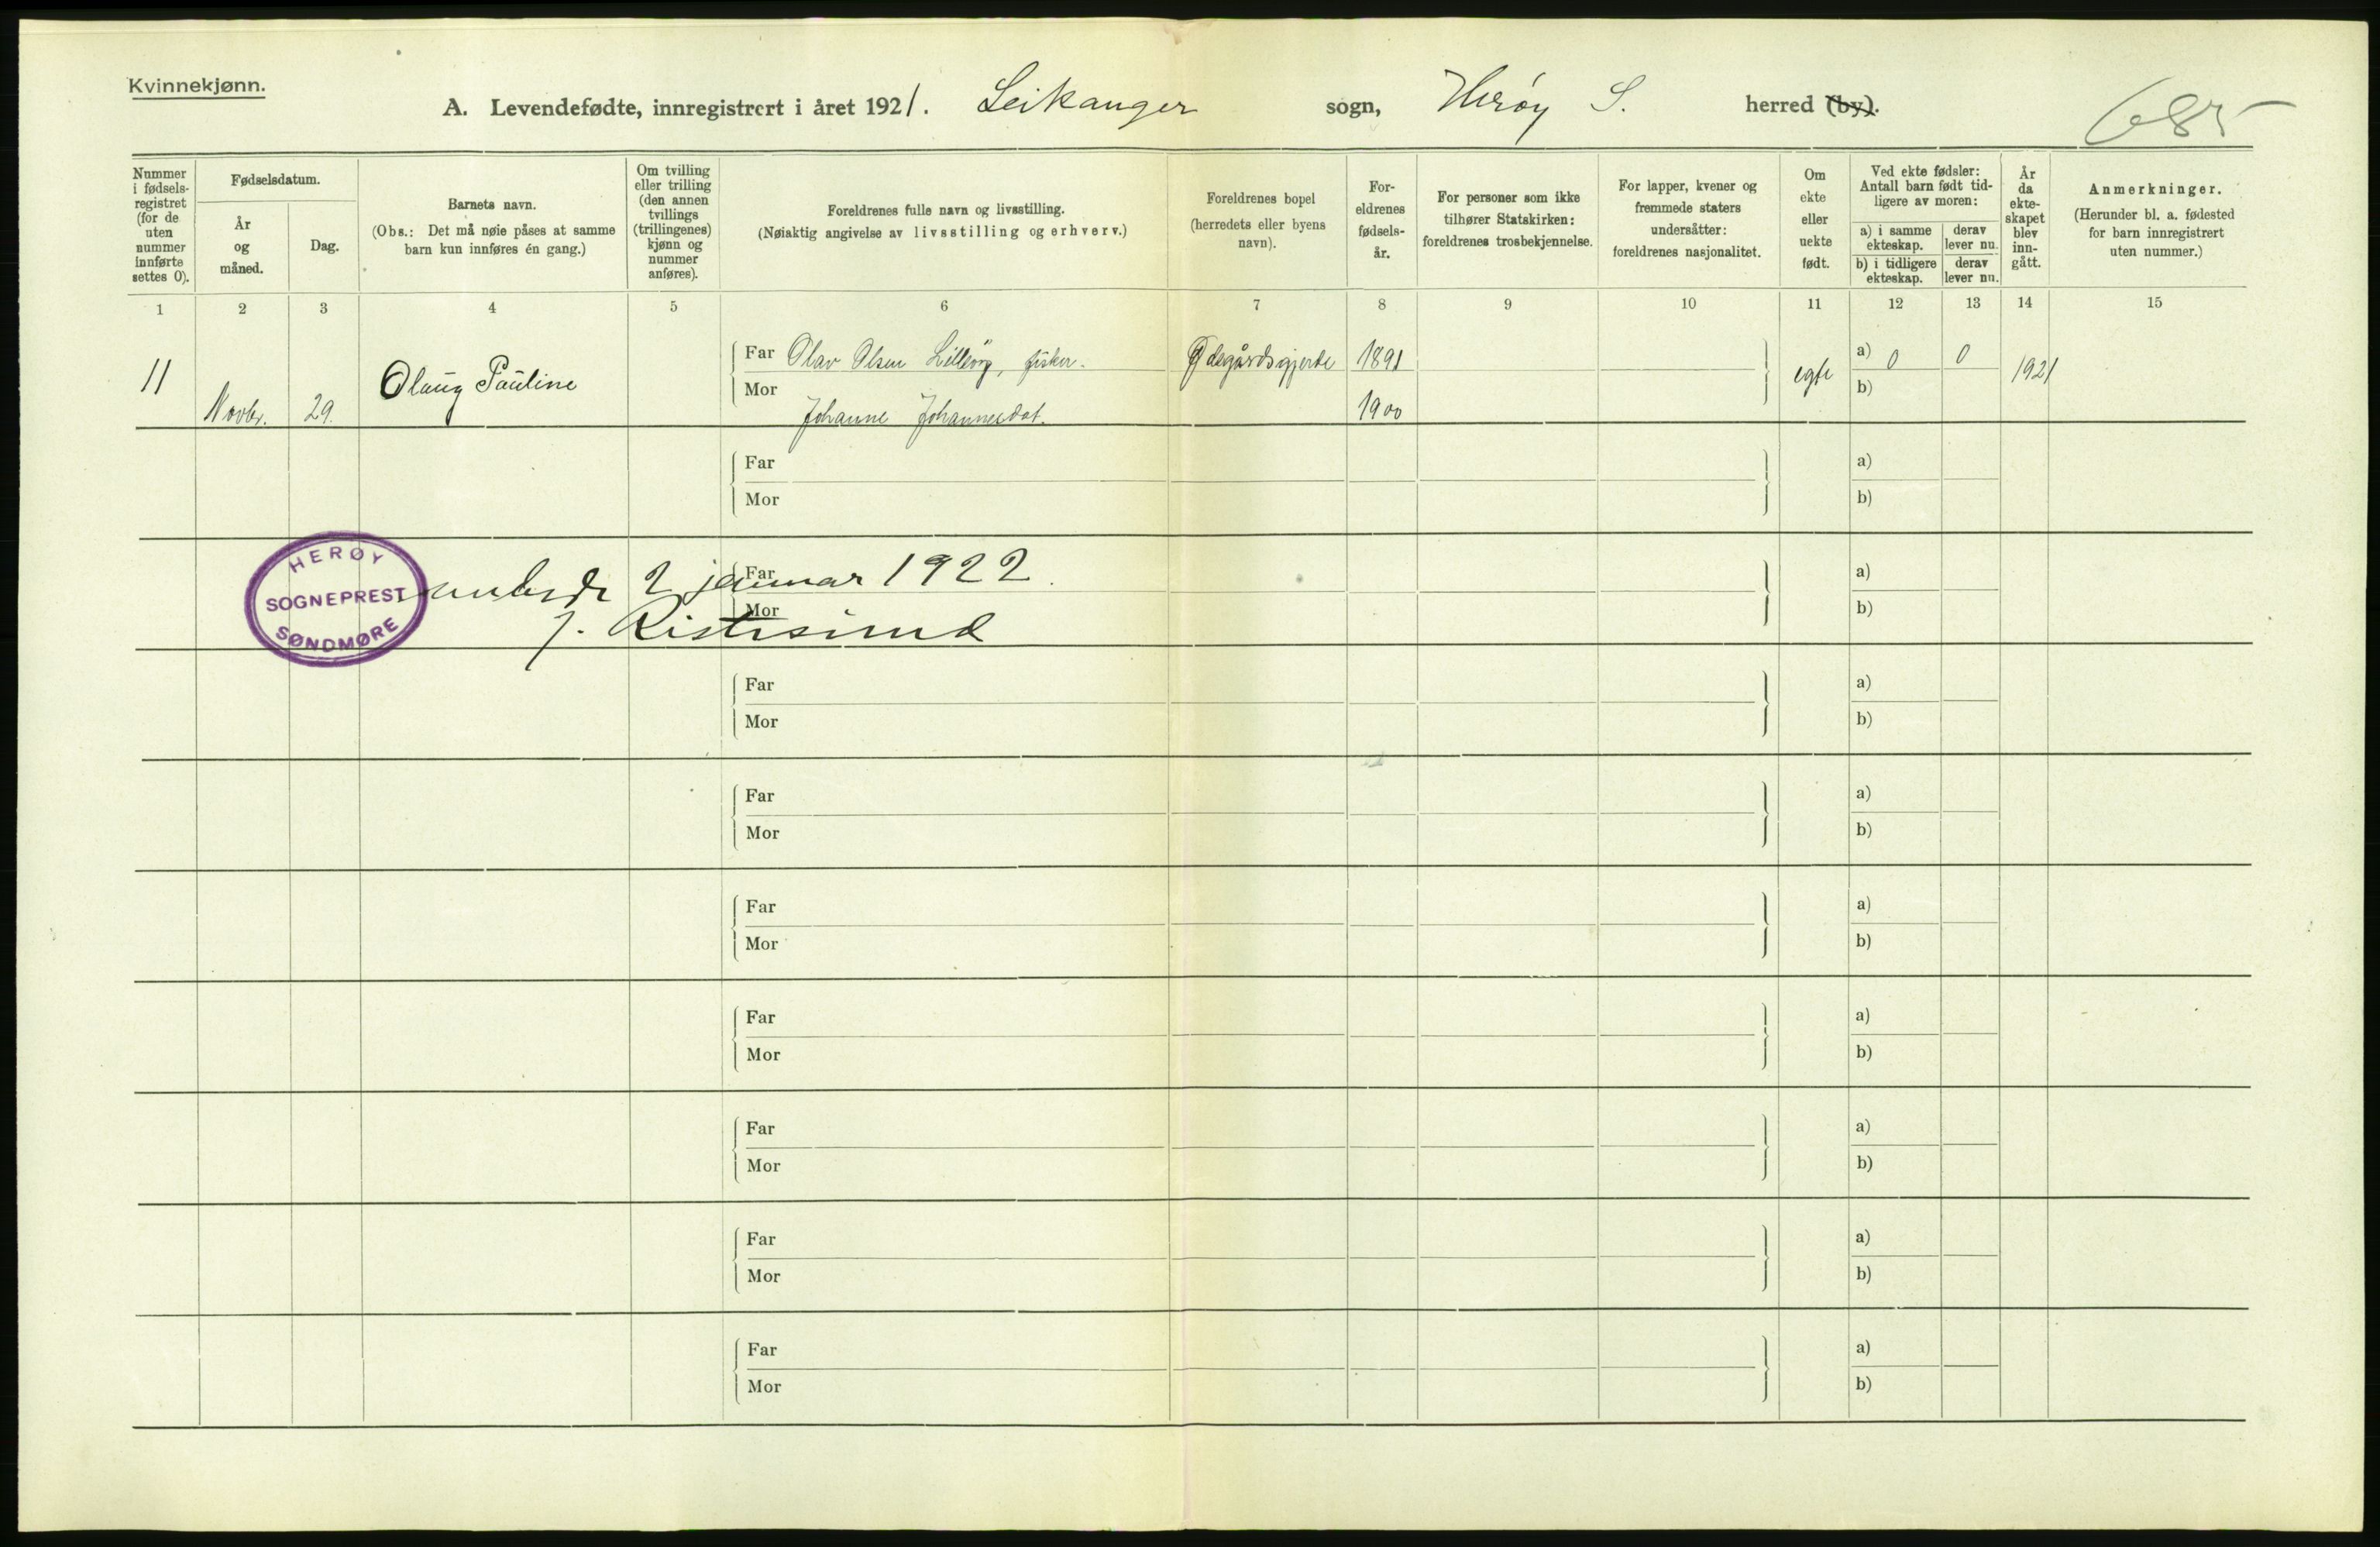 Kvinnekjønn.
A. Levendefødte, innregistrert i året 1921. Leikanger sogn, Herøy S. herred (by).
685
Nummer i fødselsregistret (for de uten nummer innførte settes 0).
Fødselsdatum.
År og måned.
Dag.
Barnets navn.
(Obs.: Det må nøie påses at samme barn kun innføres én gang.)
Om tvilling eller trilling (den annen tvillings (trillingenes) kjønn og nummer anføres).
Foreldrenes fulle navn og livsstilling.
(Nøiaktig angivelse av livsstilling og erhverv.)
Foreldrenes bopel
(herredets eller byens navn).
Foreldrenes fødselsår.
For personer som ikke tilhører Statskirken: foreldrenes trosbekjennelse.
For lapper, kvener og fremmede staters undersåtter: foreldrenes nasjonalitet.
Om ekte eller uekte født.
Ved ekte fødsler: Antall barn født tidligere av moren:
a) i samme ekteskap.
derav lever nu.
b) i tidligere ekteskap.
derav lever nu.
År da ekteskapet blev inngått.
Anmerkninger.
(Herunder bl. a. fødested for barn innregistrert uten nummer.)
1 2 3 4 5 6 7 8 9 10 11 12 13 14 15
11 Novbr. 29. Olaug Pauline
Far Olav Olsen, fisker. Ødegårdsgjerde 1891 egte a) 0 0 1921
Mor Johanne Johannesdot. 1900 b)
Far a)
Mor b)
HERØY
SOGNEPREST
SØNDMØRE
embede 2 januar 1922.
Far a)
J. Ristesund
Mor b)
Far a)
Mor b)
Far a)
Mor b)
Far a)
Mor b)
Far a)
Mor b)
Far a)
Mor b)
Far a)
Mor b)
Far a)
Mor b)